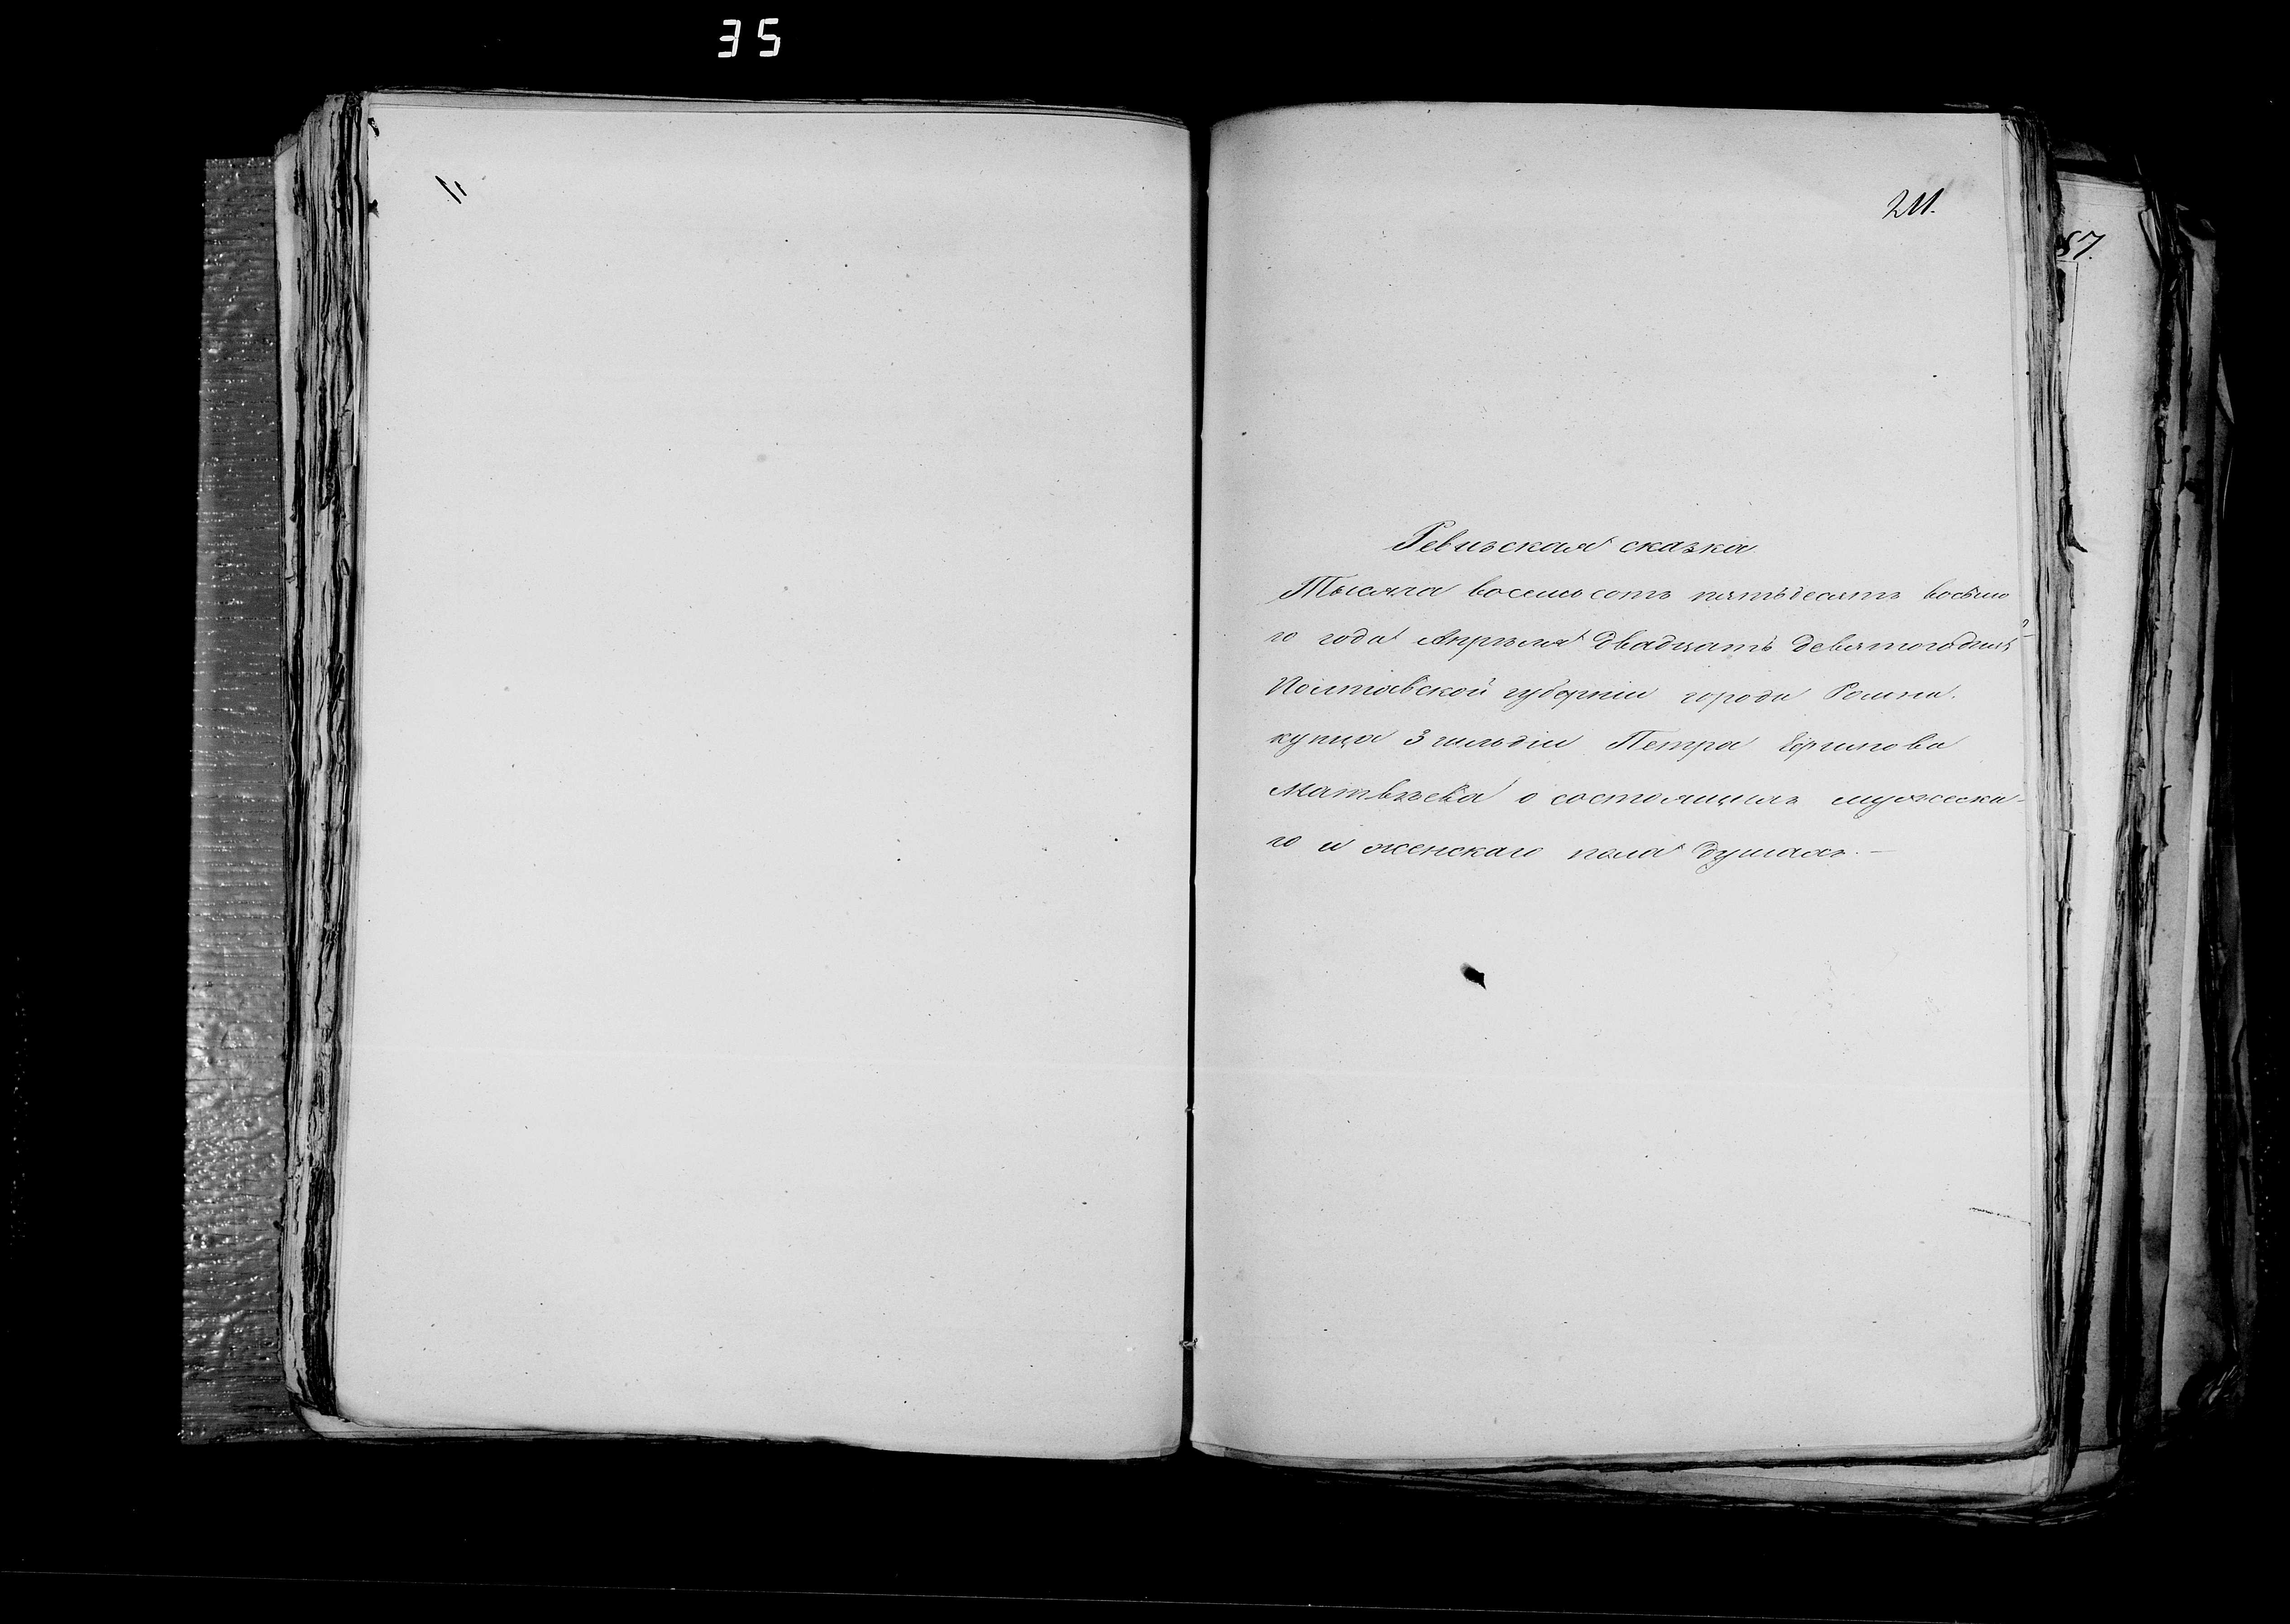 35
211.
87.
Ревизская сказка
Тысяча восемьсотъ пятьдесятъ восьмо
го года Апрѣля двадцать девятого дня
Полтавской губерніи города Ромна.
купца 3 гильдіи Петра Ефимова
Матвѣева о состоящихъ мужеска-
го и женскаго пола душахъ.—